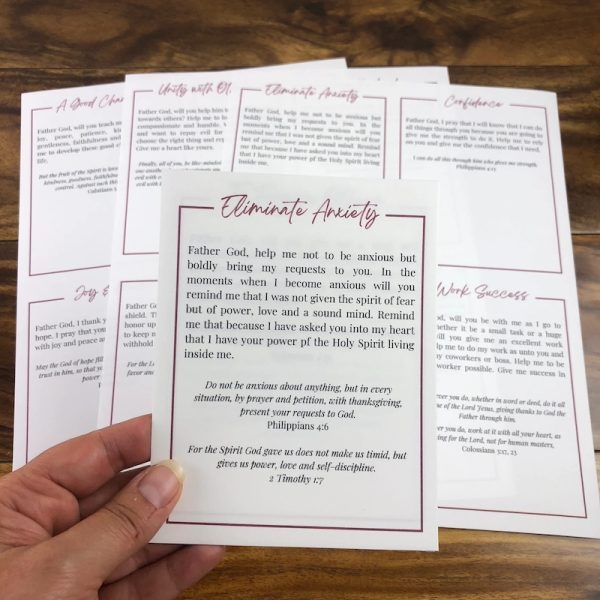 A Good Char
Father God, will you teach m
joy, peace, patience, ki
gentleness, faithfulness and
me to develop these good c
life.
But the fruit of the spirit is lov
kindness, goodness, faithful
control. Against such thi
Galatians 5
Unity with Ot
Father God, will you help him t
towards others? Help me to
compassionate and humble.
and want to repay evil for
choose the right thing and rep
Give me a heart like yours.
Finally, all of you, be like-minde
one anoth
evil with
evil with
Eliminate Anxiety
Father God, help me not to be anxious but
boldly bring my requests to you. In the
moments when I become anxious will you
remind me that I was not given the spirit of fear
but of power, love and a sound mind. Remind
me that because I have asked you into my heart
that I have your power pf the Holy Spirit living
inside me.
Confidence
Father God, I pray that I will know that I can do
all things through you because you are going to
give me the strength to do it. Help me to rely
on you and give me the confidence that I need.
I can do all this through him who gives me strength.
Philippians 4:13
Joy &
Father God, I thank y
hope. I pray that you
with joy and peace a
May the God of hope fill
trust in him, so that y
power.
shield. Th
honor up
to keep n
withhold
For the L
favor and
Work Success
God, will you be with me as I go to
whether it be a small task or a huge
ill you give me an excellent work
elp me to do my work as unto you and
y coworkers or boss. Help me to be
worker possible. Give me success in
ver you do, whether in word or deed, do it all
me of the Lord Jesus, giving thanks to God the
Father through him.
ver you do, work at it with all your heart, as
ing for the Lord, not for human masters,
Colossians 3:17, 23
Eliminate Anxiety
Father God, help me not to be anxious but
boldly bring my requests to you. In the
moments when I become anxious will you
remind me that I was not given the spirit of fear
but of power, love and a sound mind. Remind
me that because I have asked you into my heart
that I have your power pf the Holy Spirit living
inside me.
Do not be anxious about anything, but in every
situation, by prayer and petition, with thanksgiving,
present your requests to God.
Philippians 4:6
For the Spirit God gave us does not make us timid, but
gives us power, love and self-discipline.
2 Timothy 1:7